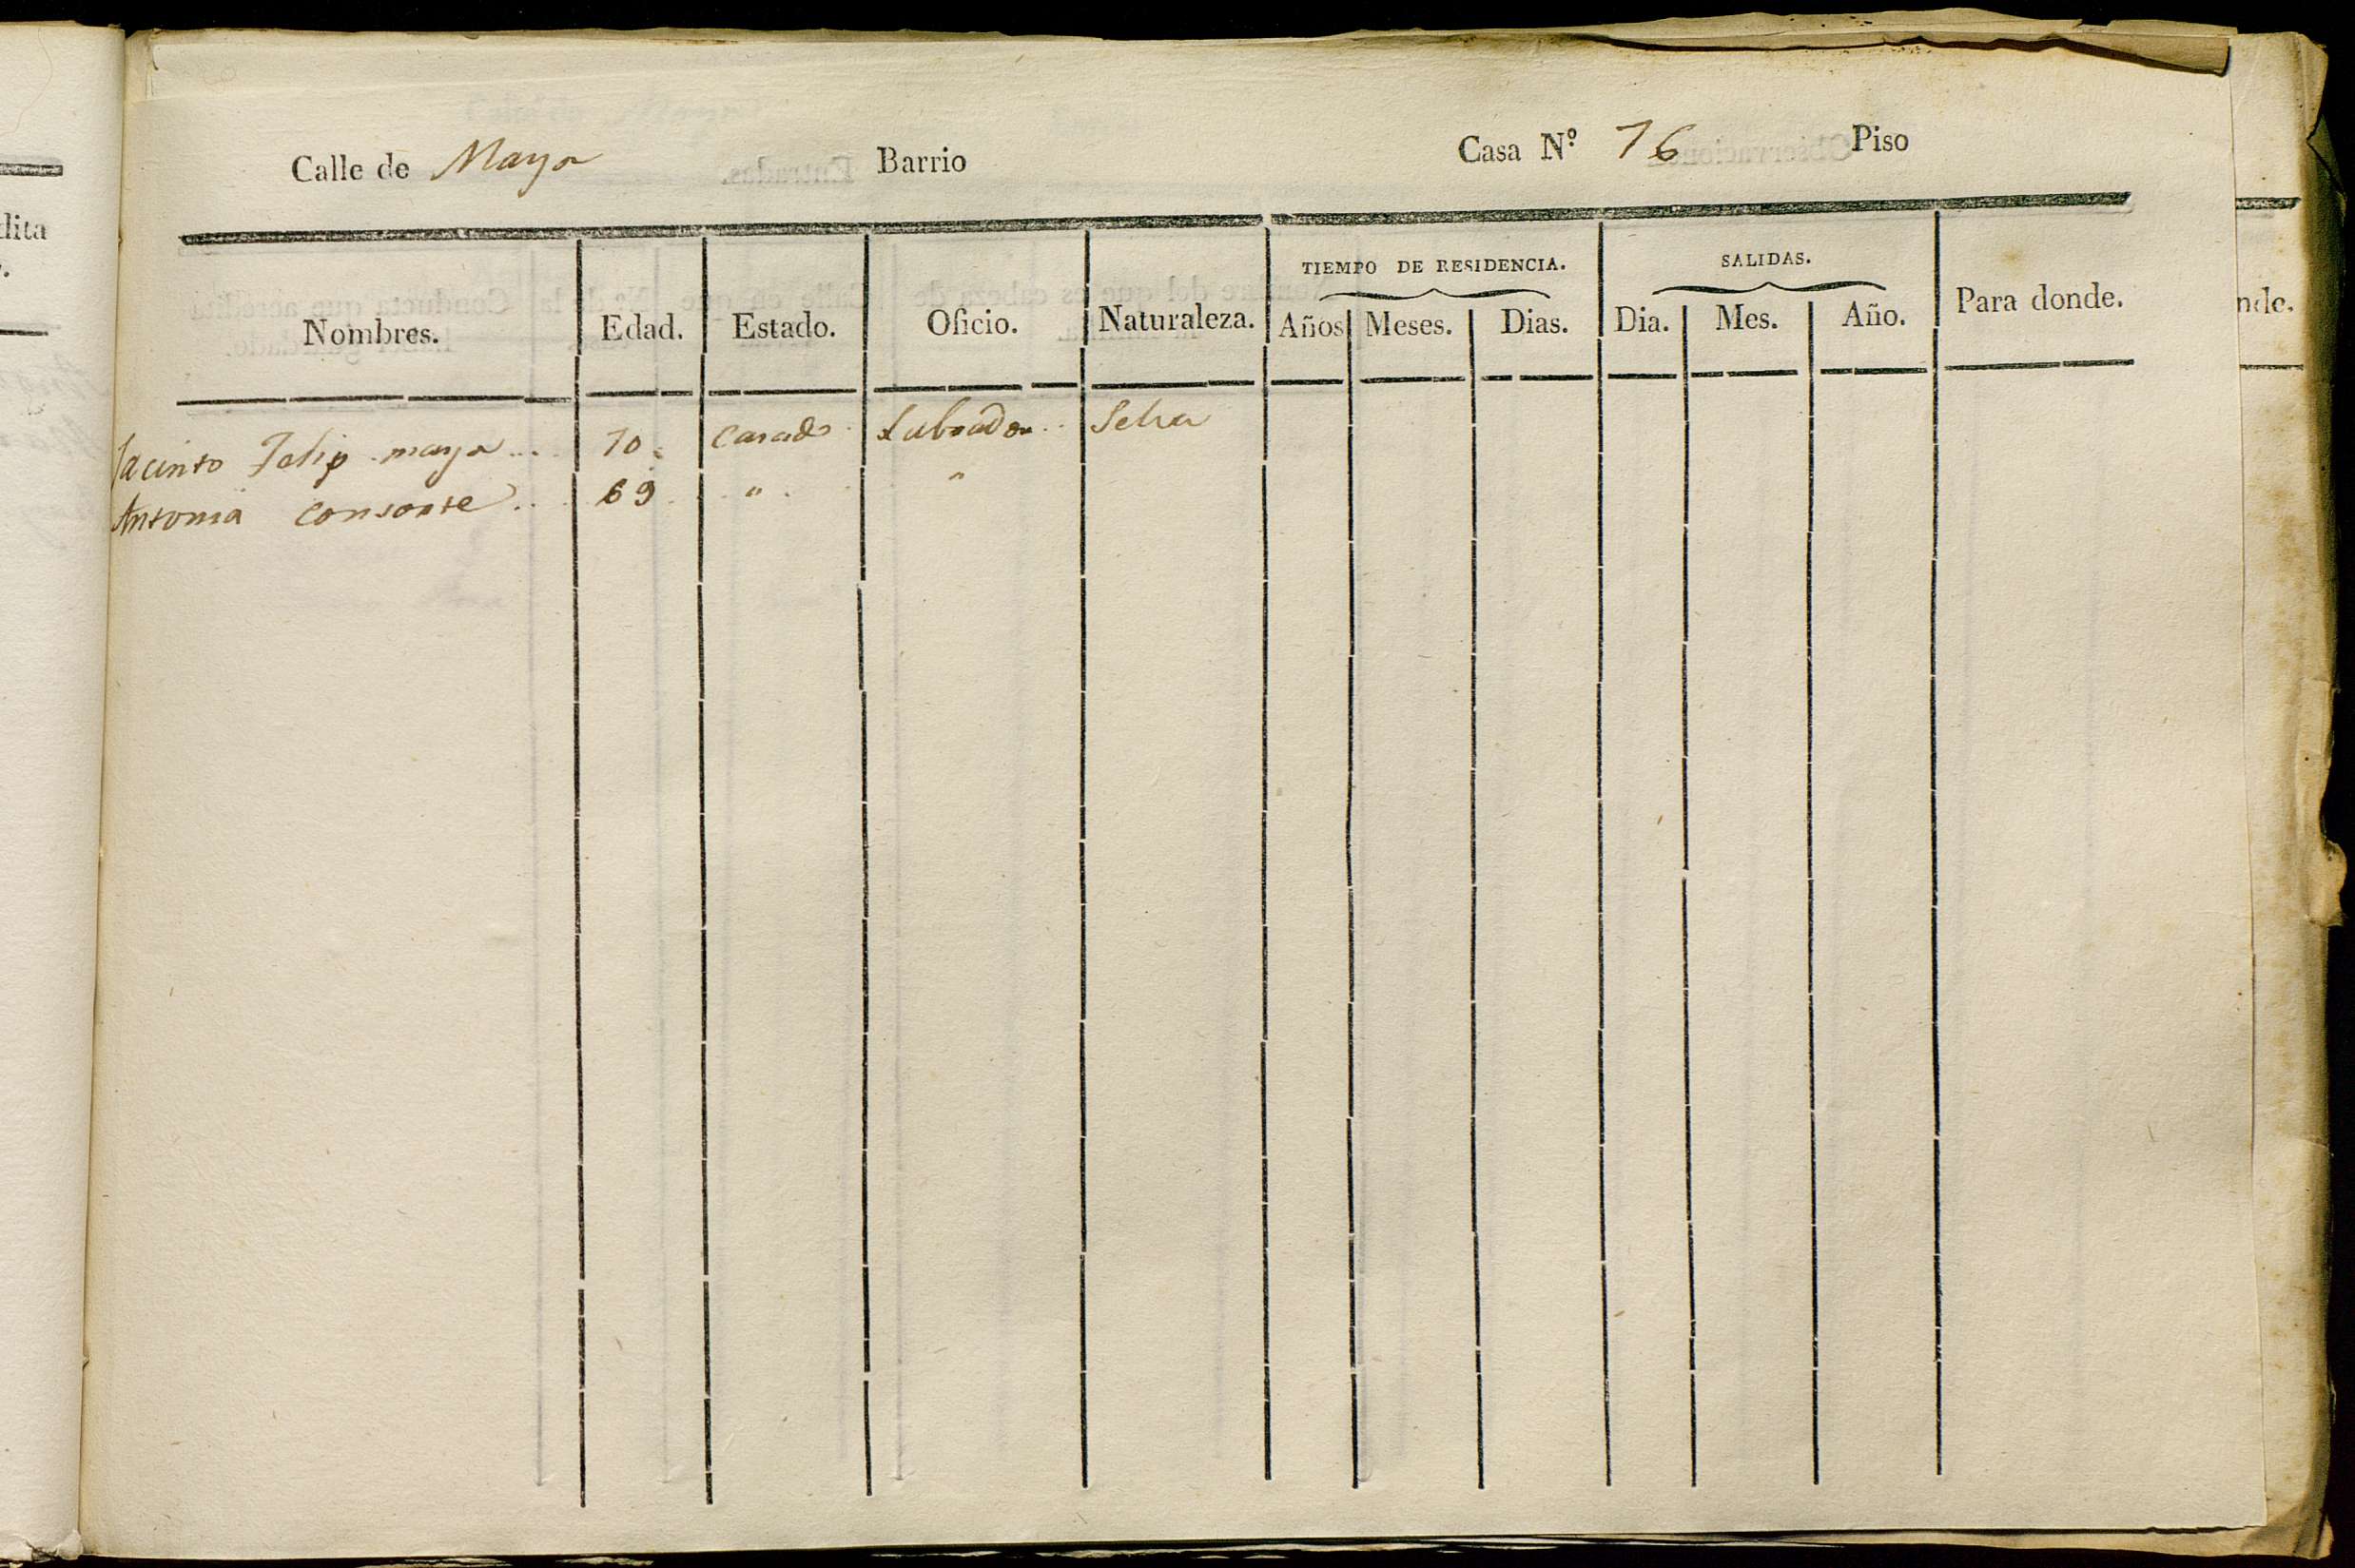 Calle de Mayor Barrio Casa N.º 76 Piso
TIEMPO DE RESIDENCIA. SALIDAS.
Nombres. Edad. Estado. Oficio. Naturaleza. Años Meses. Dias. Dia. Mes. Año. Para donde.
Jacinto Felip mayor 70 Casado Labrador Selva
Antonia consorte 69 " "
dita
nde.